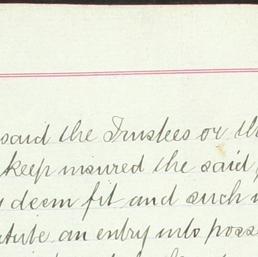 said the Trustees or th
keep insured the said
deem fit and such
an entry into poss